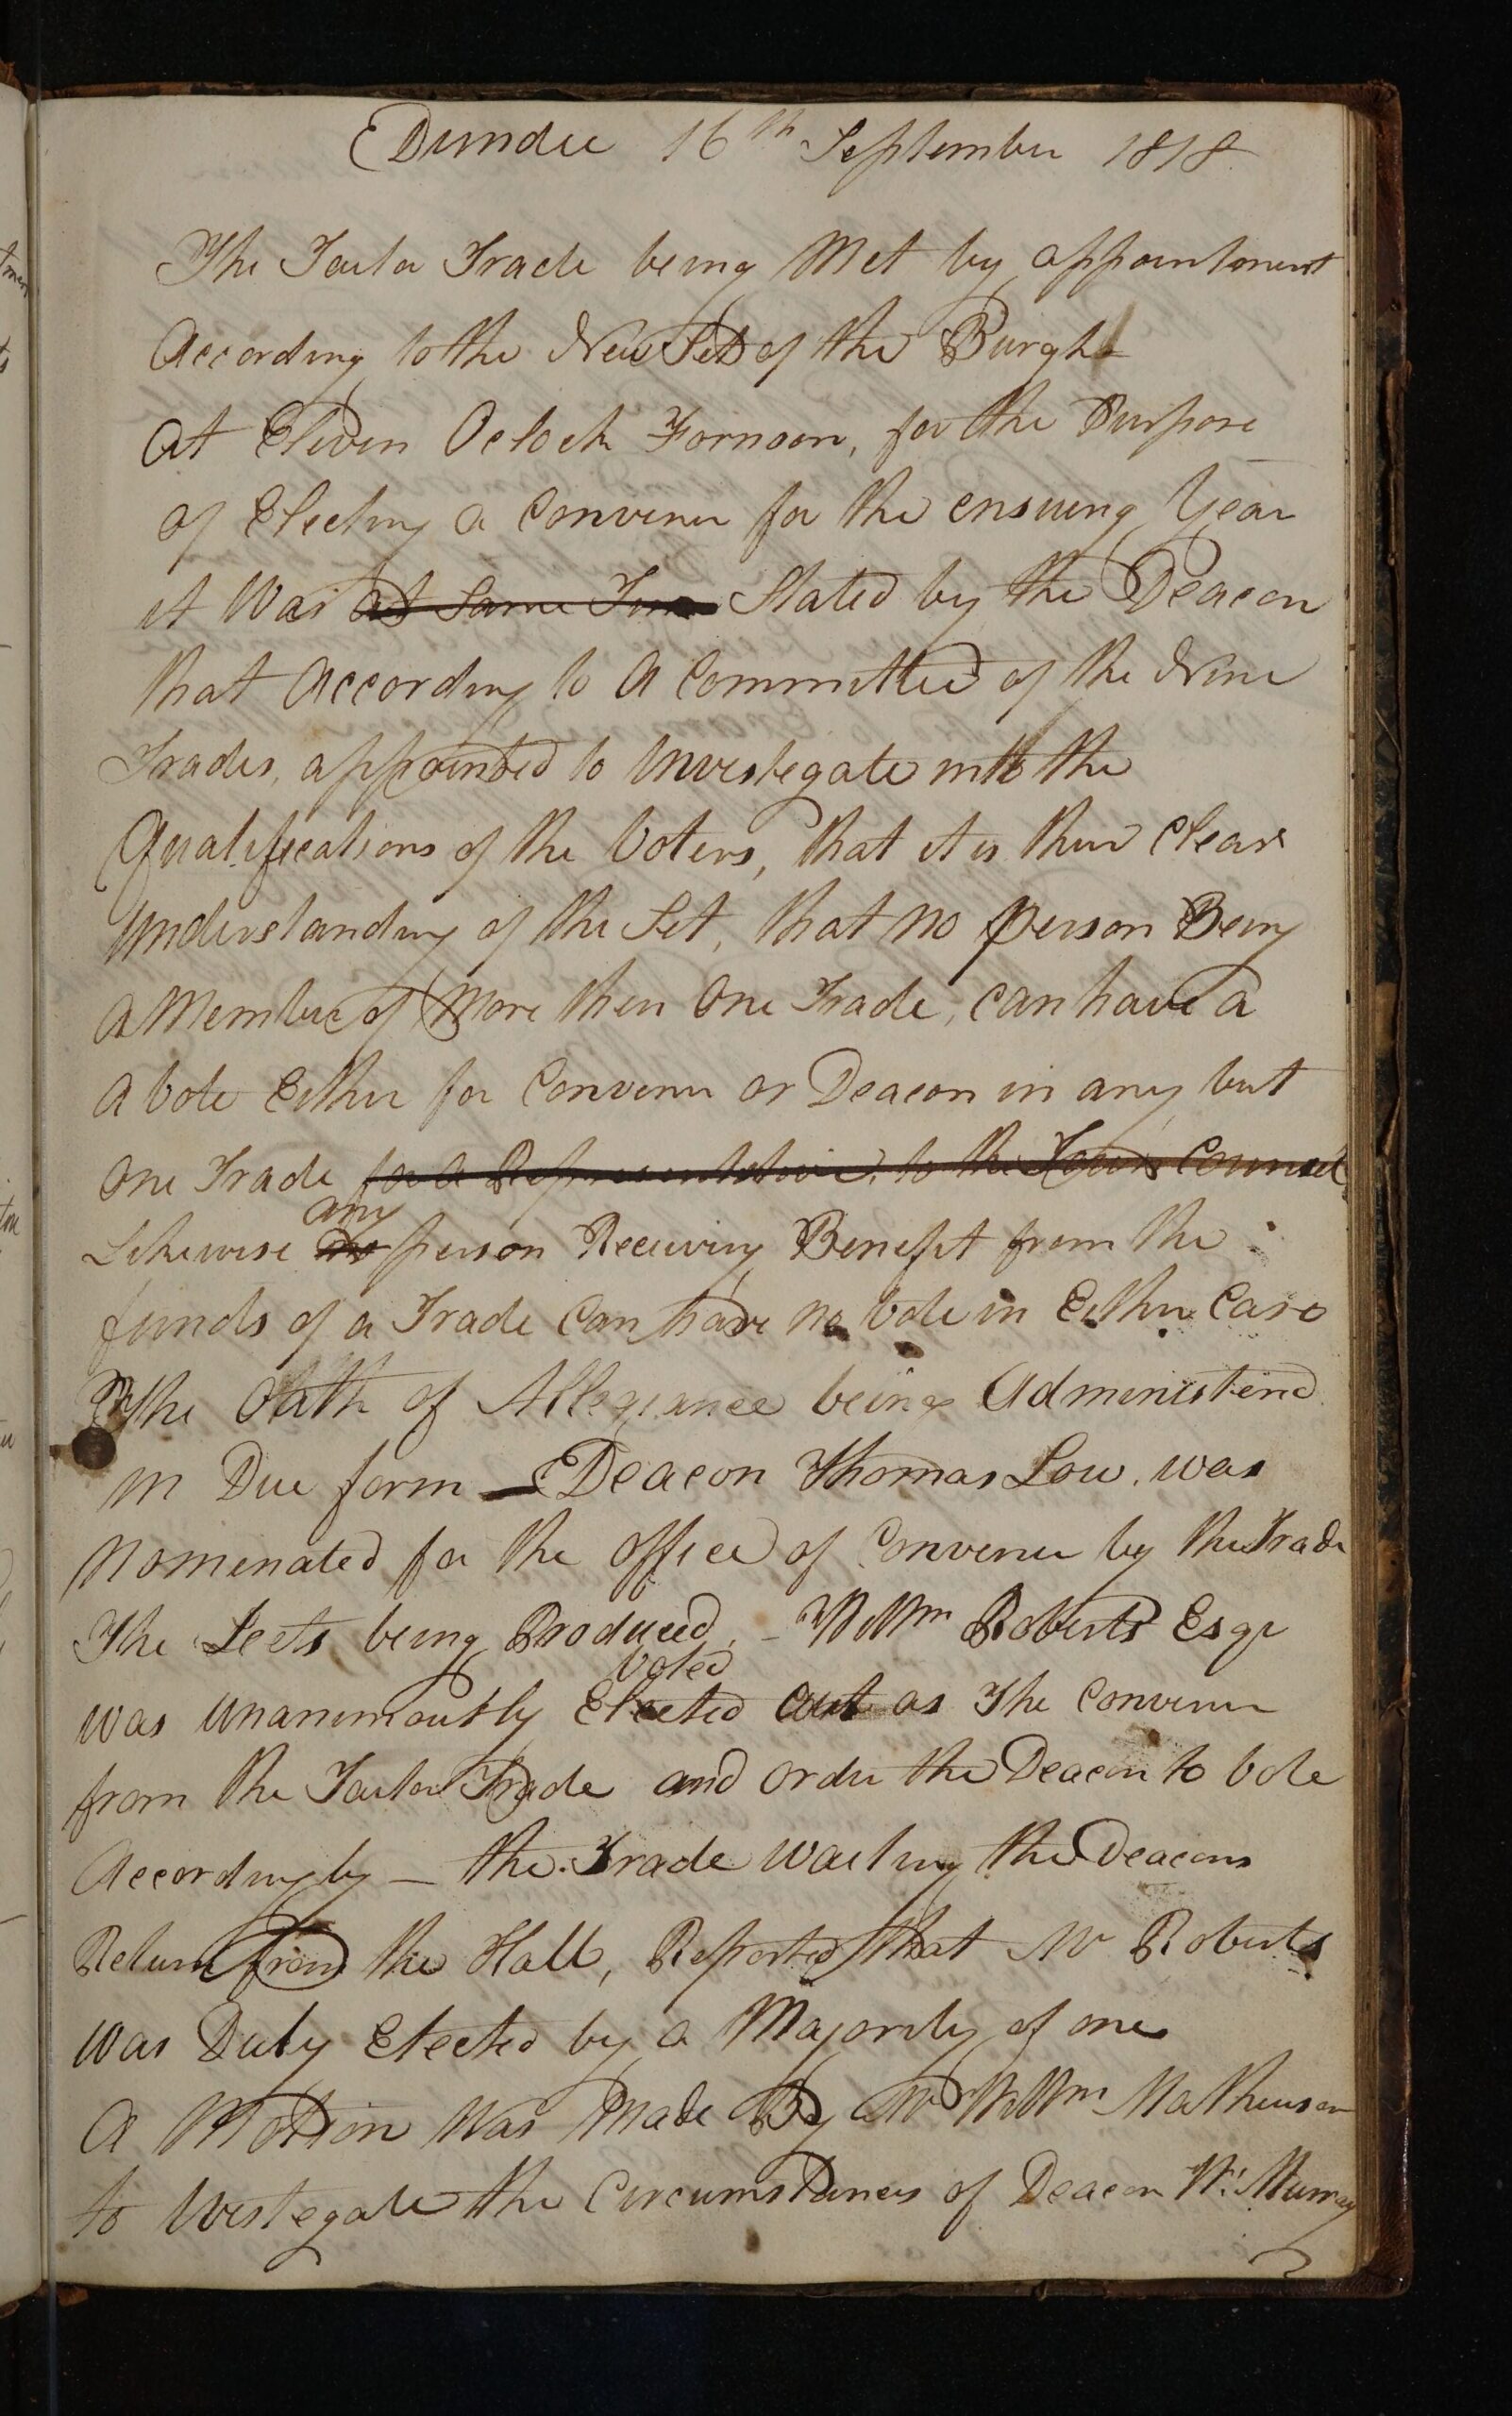 Dundee 16th September 1818
The Tailor Trade being Met by appointment
According to the New Sett of the Burgh
At Eleven Oclock Fornoon, for the Purpose
of Electing a Convener for the ensuing Year
it Was at Same Time Stated by the Deacon
that According to A Committee of the Nine
Trades, appointed to Investegate into the
Qualifications of the Voters, that it is their Clear
Understanding of the Set, that no person Being
A Member of More then One Trade, can have a
a Vote Either for Convener or Deacon in any but
One Trade for a Representative, to the Town Council
any
Likewise no person Receiving Benefit from the
funds of a Trade Can have no Vote in Either Case
the Oath of Allegiance being Administerd
in Due form — Deacon Thomas Low. was
Nomenated for the office of Convener by the Trade
The Leets being Produced, – Willm Roberts Esqr
Voted
was Unanimously Elected out as The Convener
from the Tailor Trade and order the Deacon to Vote
Accordingly — the Trade Waiting the Deacons
Return from the Hall, Reported that Mr Roberts
was Duly Elected by a Majority of one
A Motion Was Made By Mr Willm Mathewson
to Investegate the Circumstances of Deacon Wm Murray